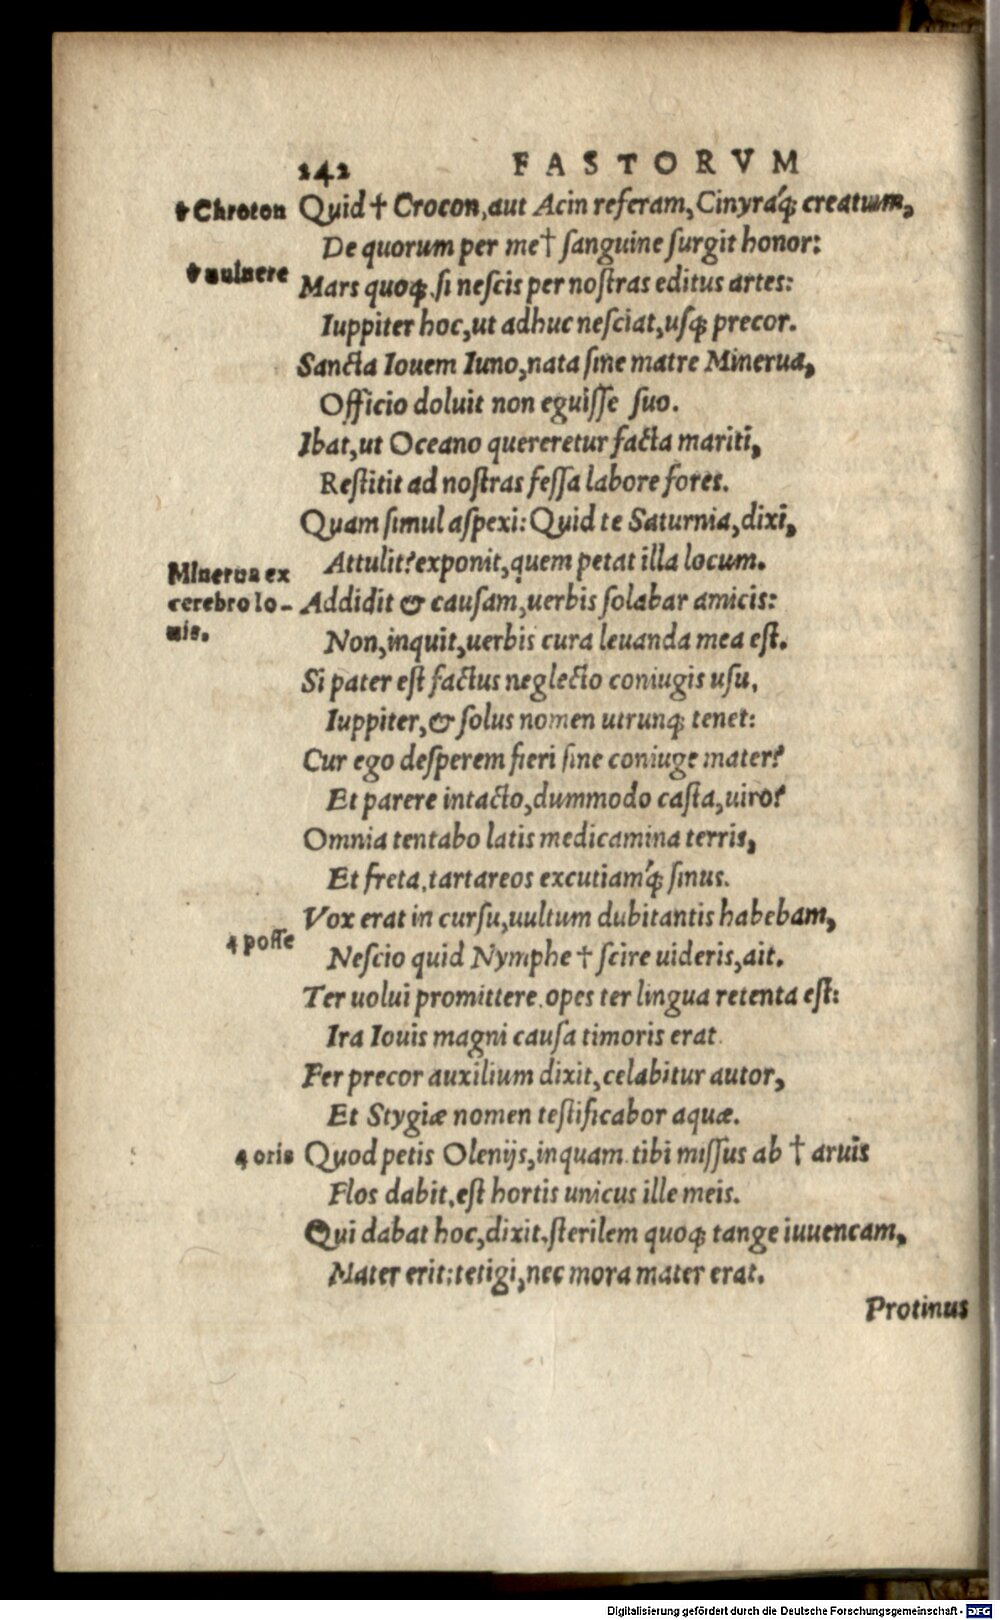 242 FASTORVM
† Chroton Quid † Crocon, aut Acin referam, Cinyraq́; creatum,
De quorum per me † sanguine surgit honor:
† uulnere
Mars quoq;, si nescis per nostras editus artes:
Iuppiter hoc, ut adhuc nesciat, usq; precor.
Sancta Iouem Iuno, nata sine matre Minerua,
Officio doluit non eguisse suo.
Ibat, ut Oceano quereretur facta mariti,
Restitit ad nostras fessa labore fores.
Quam simul aspexi: Quid te Saturnia, dixi,
Attulit? exponit, quem petat illa locum.
Minerua ex
cerebro Io-
uis.
Addidit & causam, uerbis solabar amicis:
Non, inquit, uerbis cura leuanda mea est.
Si pater est factus neglecto coniugis usu,
Iuppiter, & solus nomen utrunq; tenet:
Cur ego desperem fieri sine coniuge mater?
Et parere intacto, dummodo casta, uiro?
Omnia tentabo latis medicamina terris,
Et freta, tartareos excutiamq́; sinus.
Vox erat in cursu, uultum dubitantis habebam,
4 posse
Nescio quid Nymphe † scire uideris, ait.
Ter uolui promittere opes ter lingua retenta est:
Ira Iouis magni causa timoris erat.
Fer precor auxilium dixit, celabitur autor,
Et Stygiæ nomen testificabor aquæ.
4 oris Quod petis Olenijs, inquam tibi missus ab † aruis
Flos dabit, est hortis unicus ille meis.
Qui dabat hoc, dixit, sterilem quoq; tange iuuencam,
Mater erit: tetigi, nec mora mater erat.
Protinus
Digitalisierung gefördert durch die Deutsche Forschungsgemeinschaft - DFG